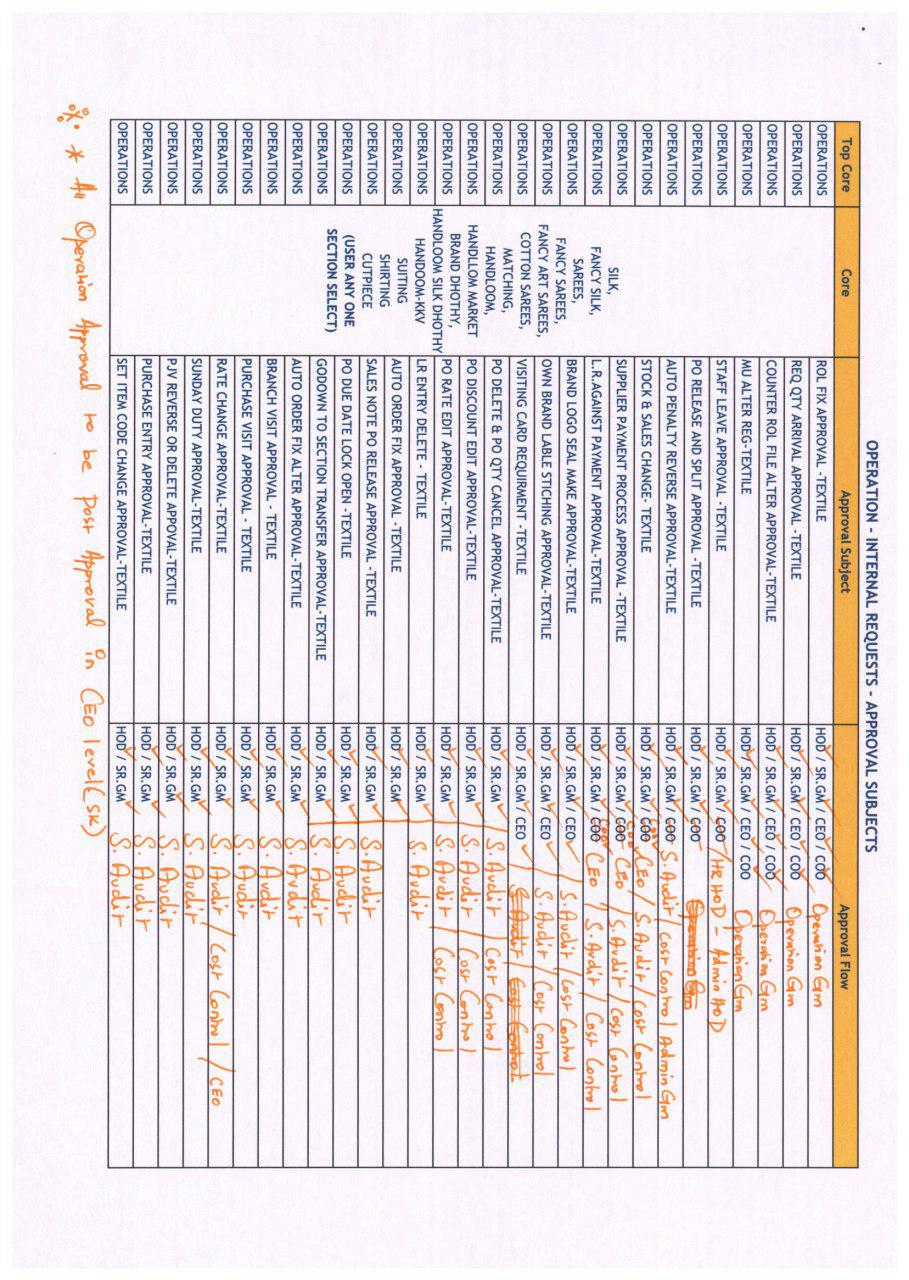 OPERATION - INTERNAL REQUESTS - APPROVAL SUBJECTS
Top Core Core Approval Subject Approval Flow
OPERATIONS ROL FIX APPROVAL -TEXTILE HOD / SR.GM / CEO / COO Operation Gm
OPERATIONS REQ QTY ARRIVAL APPROVAL -TEXTILE HOD / SR.GM / CEO / COO Operation Gm
OPERATIONS COUNTER ROL FILE ALTER APPROVAL-TEXTILE HOD / SR.GM / CEO / COO Operation Gm
OPERATIONS MU ALTER REG-TEXTILE HOD / SR.GM / CEO / COO Operation Gm
OPERATIONS STAFF LEAVE APPROVAL -TEXTILE HOD / SR.GM / COO / HR HOD - Admin HOD
OPERATIONS PO RELEASE AND SPLIT APPROVAL -TEXTILE HOD / SR.GM / COO Operation Gm
OPERATIONS AUTO PENALTY REVERSE APPROVAL-TEXTILE HOD / SR.GM / COO S. Audit / Cost Control / Admin Gm
OPERATIONS STOCK & SALES CHANGE- TEXTILE HOD / SR.GM / COO CEO / S. Audit / Cost Control
OPERATIONS SUPPLIER PAYMENT PROCESS APPROVAL -TEXTILE HOD / SR.GM / COO CEO / S. Audit / Cost Control
OPERATIONS L.R.AGAINST PAYMENT APPROVAL-TEXTILE HOD / SR.GM / COO CEO / S. Audit / Cost Control
OPERATIONS BRAND LOGO SEAL MAKE APPROVAL-TEXTILE HOD / SR.GM / CEO / S. Audit / Cost Control
OPERATIONS OWN BRAND LABLE STICHING APPROVAL-TEXTILE HOD / SR.GM / CEO S. Audit / Cost Control
OPERATIONS VISITING CARD REQUIRMENT -TEXTILE HOD / SR.GM / CEO / S. Audit / Cost Control
OPERATIONS PO DELETE & PO QTY CANCEL APPROVAL-TEXTILE HOD / SR.GM S. Audit / Cost Control
OPERATIONS PO DISCOUNT EDIT APPROVAL-TEXTILE HOD / SR.GM S. Audit / Cost Control
OPERATIONS PO RATE EDIT APPROVAL-TEXTILE HOD / SR.GM S. Audit / Cost Control
OPERATIONS LR ENTRY DELETE - TEXTILE HOD / SR.GM S. Audit
OPERATIONS AUTO ORDER FIX APPROVAL -TEXTILE HOD / SR.GM
OPERATIONS SALES NOTE PO RELEASE APPROVAL -TEXTILE HOD / SR.GM S. Audit
OPERATIONS PO DUE DATE LOCK OPEN -TEXTILE HOD / SR.GM S. Audit
OPERATIONS GODOWN TO SECTION TRANSFER APPROVAL-TEXTILE HOD / SR.GM S. Audit
OPERATIONS AUTO ORDER FIX ALTER APPROVAL-TEXTILE HOD / SR.GM S. Audit
OPERATIONS BRANCH VISIT APPROVAL - TEXTILE HOD / SR.GM S. Audit
OPERATIONS PURCHASE VISIT APPROVAL - TEXTILE HOD / SR.GM S. Audit
OPERATIONS RATE CHANGE APPROVAL-TEXTILE HOD / SR.GM S. Audit / Cost Control / CEO
OPERATIONS SUNDAY DUTY APPROVAL-TEXTILE HOD / SR.GM S. Audit
OPERATIONS PJV REVERSE OR DELETE APPOVAL-TEXTILE HOD / SR.GM S. Audit
OPERATIONS PURCHASE ENTRY APPROVAL-TEXTILE HOD / SR.GM S. Audit
OPERATIONS SET ITEM CODE CHANGE APPROVAL-TEXTILE HOD / SR.GM S. Audit
SILK,
FANCY SILK,
SAREES,
FANCY SAREES,
FANCY ART SAREES,
COTTON SAREES,
MATCHING,
HANDLOOM,
HANDLLOM MARKET
BRAND DHOTHY,
HANDLOOM SILK DHOTHY
HANDOOM-KKV
SUITING
SHIRTING
CUTPIECE
(USER ANY ONE
SECTION SELECT)
* All Operation Approval to be Post Approval in CEO level (SK)